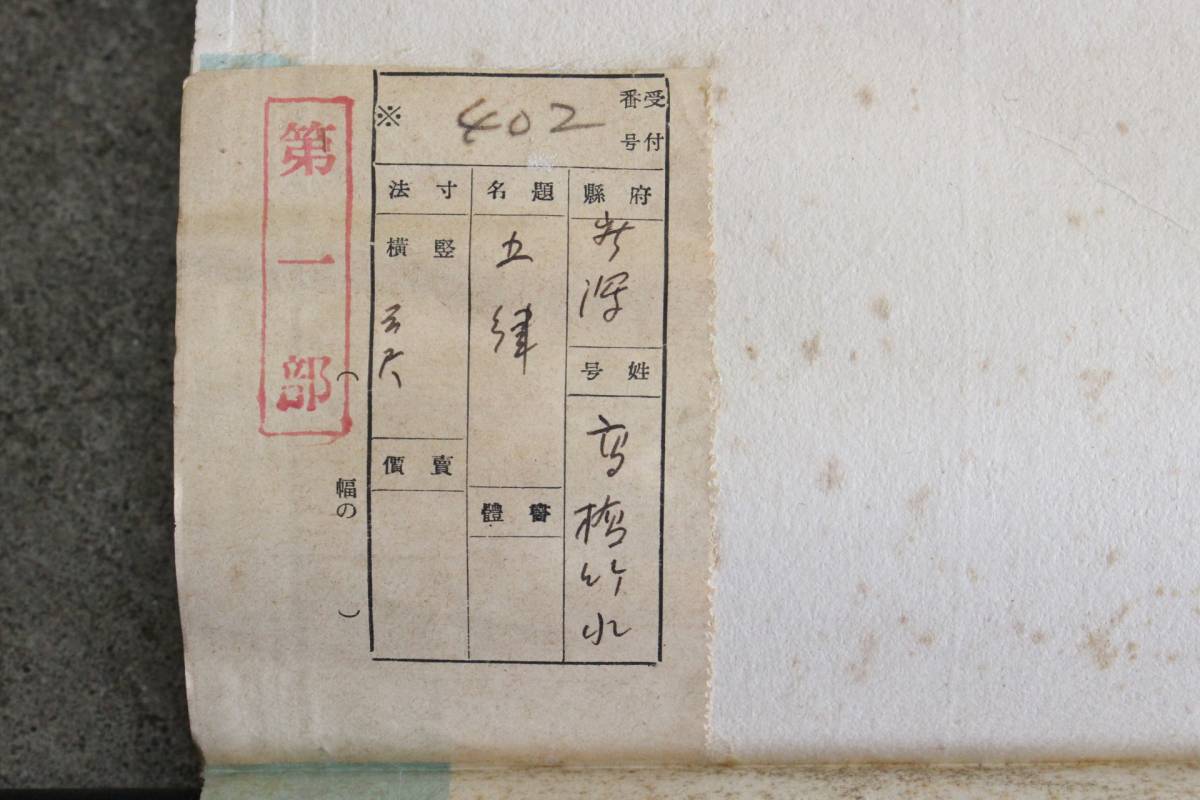 受付
番号
402
※
府縣
姓号
高橋竹水
題名
五律
書體
寸法
竪
横
尺
賣價
( 幅の )
第一部